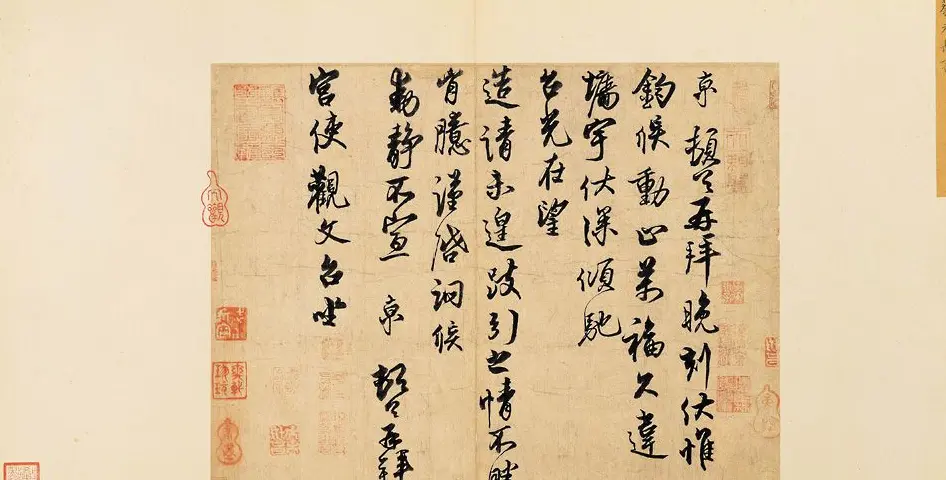 京頓首再拜晚刻伏惟
鈞候動止萬福久違
墻宇伏深傾馳
台光在望
造請未遑跂引之情不勝
胷臆謹啓詗候
動靜不宣 京 頓首再拜
宮使觀文台坐